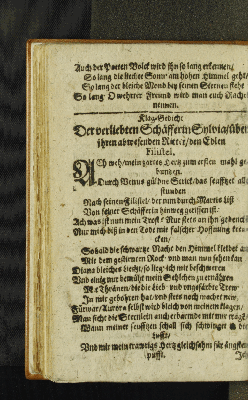 Auch der Poeten Volck wird ihn so lang erkennen/
So lang die liechte Sonn' am hohen Himmel geht/
So lang der bleiche Mond bey seinen Sternen steht
So lang / O wehrter Freund wird man euch
nennen.
Klag-Gedicht
Der verliebten Schäfferin Sylvia/über
ihren abwesenden Ritter/den Edlen
Filistel.
Ach weh/mein zartes Hertz zum ersten mahl ge-
bunden.
Durch Venus güldne Strick/das seufftzet all
stunden
Nach seinem Filistel/der nun durch Martis List
Von seiner Schäfferin hinweg gerissen ist:
Ach was ist nun mein Trost? Nur stets an ihn gedenck
Nur mich biß in den Tode mit falscher Hoffnung
cken/
So bald die schwartze Nacht den Himmel
Mit dem gestirnten Rock/und man nun sehen kan
Diana bleiches Liecht/so lieg' ich mit beschweren
Und einig nur bemüht mein Sehnlichen zu ernähren
Mit Thränen/die die Lieb- und ungefärbte Trew
In mir gebohren hat/und stets noch machet new/
Fürwar/Aurora selbst wird bleich von meinem klagen/
Man sieht die Sternlein auch erbarmde mit mir
Wann meiner seufftzen schall sich schwinget in die
Lufft/
Und mir mein trawrigs Hertz gleichsam für ängsten
pufft.